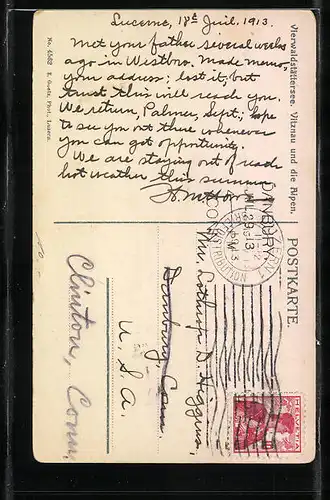 Lucerne, 18th Juil, 1913.
Met your father several weeks
ago in Westboro. Made memo.
your address; lost it, but
trust this will reach you.
We return, Palmer, Sept; hope
to see you out there whenever
you can get opportunity.
We are staying out of reach
hot weather this summer
Vierwaldstättersee. Vitznau und die Alpen.
No. 4562 E. Goetz, Phot., Luzern.
POSTKARTE.
DANBURY
Mr. Lothrop D. Higgins,
Danbury, Conn.
U.S.A.
Clinton, Conn
10.-
HELVETIA